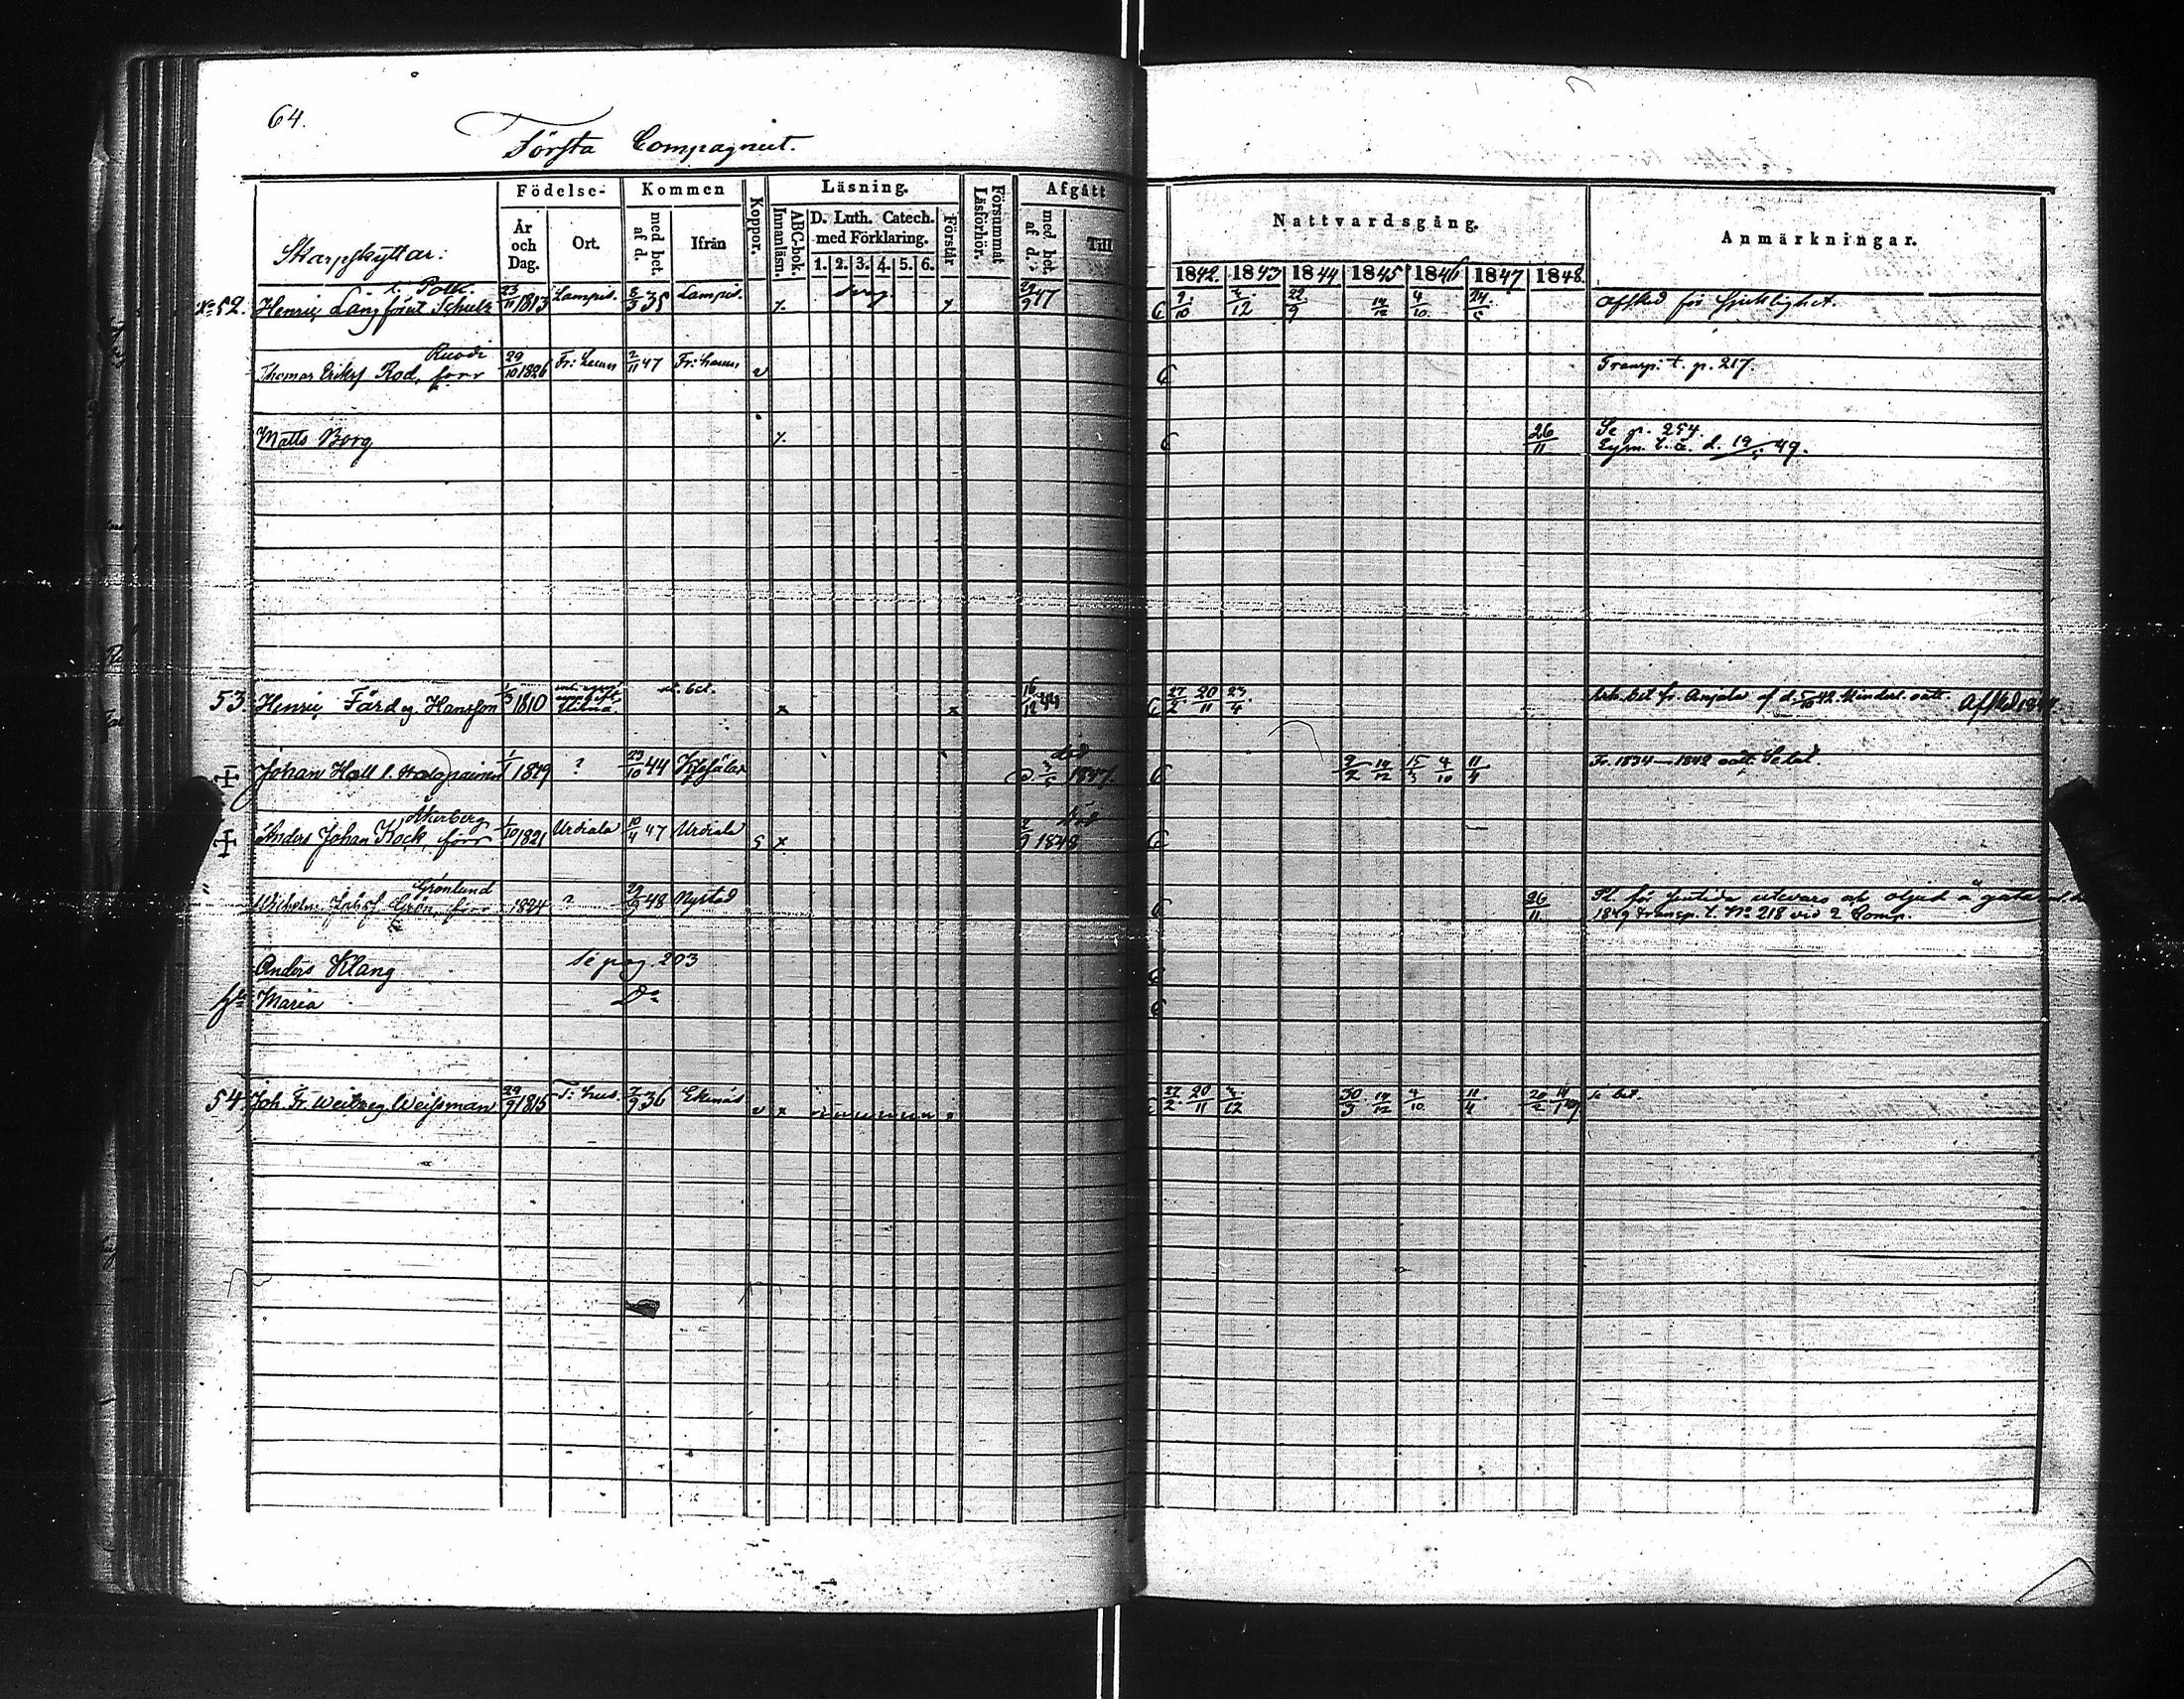 64.
Första Compagniet.
Födelse- Kommen Koppor. Läsning. Försummat Läsförhör. Afgått Nattvardsgång. Anmärkningar.
Skarpskyttar: År och Dag. Ort. med bet. af d. Ifrån Innanläsn. ABC-bok. D. Luth. Catech. med Förklaring. Förstår med bet. af d. Till
1. 2. 3. 4. 5. 6. 1842. 1843 1844 1845 1846 1847 1848.
l. Polk.
No 52. Henric Lång förut Schulz 23/10 1813 Lampis. 8/3 35 Lampis. svag 29/9 47 C 9/10 4/12 22/9 14/12 4/10 24/5 Afsked för sjuklighet.
Ruodi
Thomas Eriksf Rod, förr 29/10 1826 Fr: hamn 2/11 47 Fr: hamn v C Transp: t. p. 217.
Matts Borg C 26/11 Se p. 254.
Rymn. t. å. d. 19/5 49.
53. Henric Färd eg. Hansson 1/3 1810 16/12 44 C 27/2 20/11 23/4 Afsked 1844
död
Johan Hall l. 1/1 1829 ? 23/10 44 3/5 1847. C 2/2 14/12 15/3 4/10 11/4 Fr. 1834-1842
Åkerberg död
Anders Johan Kock, förr 1/10 1821 Urdiala 10/4 47 Urdiala 2/9 1848 C
Grönlund
Wilhelm Johsf. Grön, förr 1824 ? 29/9 48 Nystad C 26/11 Pl. för utevaro och oljud å gatan
1849 transp. t. No 218 vid 2 Comp.
Anders Klang Se pag. 203 C
Maria Do C
54 Joh. Fr. Weitz eg. Weissman 29/9 1815 T: hus. 7/9 36 Ekenäs v x C 27/2 20/11 4/12 30/3 14/12 4/10 11/4 20/2 se bet.